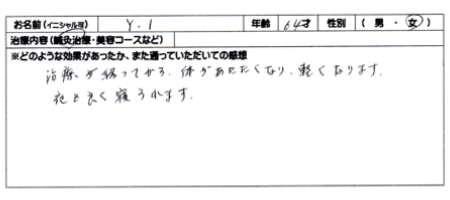 お名前(イニシャル可) Y.I 年齢 64才 性別 (男・女)
治療内容(鍼灸治療・美容コースなど)
※どのような効果があったか、また通っていただいての感想
治療が終ってから、体があたたくなり、軽くなります。
夜も良く寝られます。